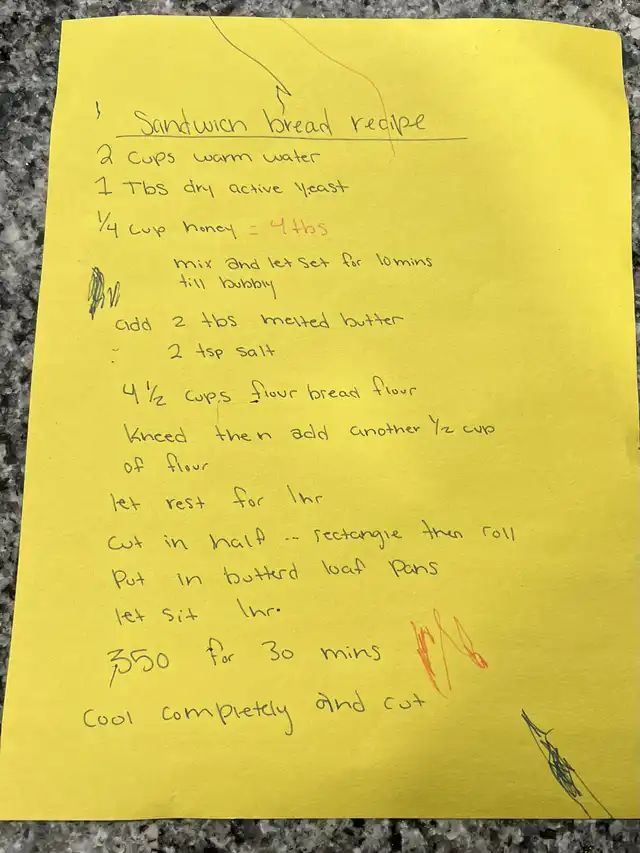 Sandwich bread recipe
2 cups warm water
1 Tbs dry active yeast
1/4 cup honey = 4 tbs
mix and let set for 10 mins
till bubbly
add 2 tbs melted butter
2 tsp salt
4 1/2 cups flour bread flour
Kneed then add another 1/2 cup
of flour
let rest for 1hr
cut in half -- rectangle then roll
Put in butterd loaf pans
let sit 1hr.
350 for 30 mins
Cool completely and cut